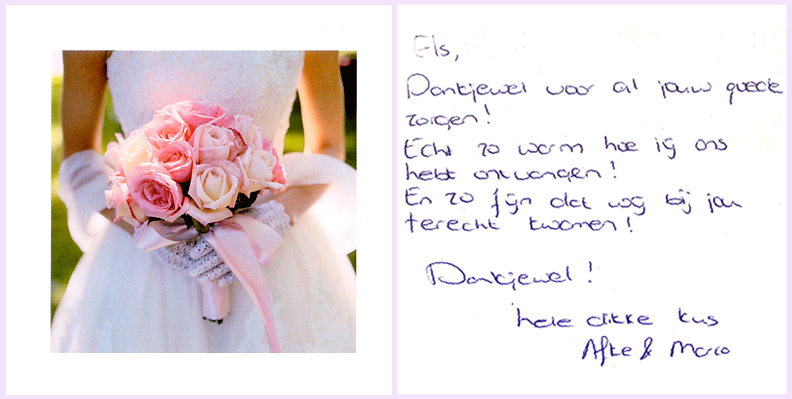 Els,
Dankjewel voor al jouw goede
zorgen!
Echt zo warm hoe jij ons
hebt ontvangen!
En zo fijn dat wij bij jou
terecht kwamen!
Dankjewel!
hele dikke kus
Afke & Marco